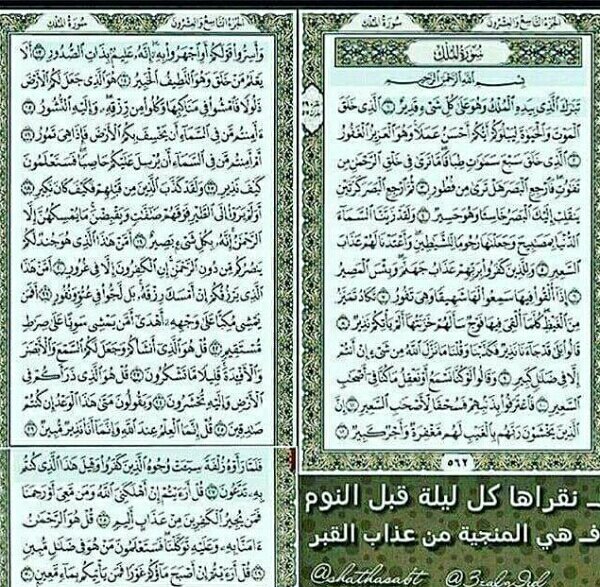 الجزء التاسع والعشرون سورة الملك
سورة الملك
بسم الله الرحمن الرحيم
تبرك الذي بيده الملك وهو على كل شيء قدير ١ الذي خلق
الموت والحيوة ليبلوكم أيكم أحسن عملا وهو العزيز الغفور
٢ الذي خلق سبع سموت طباقا ما ترى في خلق الرحمن من
تفوت فارجع البصر هل ترى من فطور ٣ ثم ارجع البصر كرتين
ينقلب إليك البصر خاسئا وهو حسير ٤ ولقد زينا السماء
الدنيا بمصبيح وجعلنها رجوما للشيطين وأعتدنا لهم عذاب
السعير ٥ وللذين كفروا بربهم عذاب جهنم وبئس المصير
٦ إذا ألقوا فيها سمعوا لها شهيقا وهي تفور ٧ تكاد تميز
من الغيظ كلما ألقي فيها فوج سألهم خزنتها ألم يأتكم نذير ٨
قالوا بلى قد جاءنا نذير فكذبنا وقلنا ما نزل الله من شيء إن أنتم
إلا في ضلل كبير ٩ وقالوا لو كنا نسمع أو نعقل ما كنا في أصحب
السعير ١٠ فاعترفوا بذنبهم فسحقا لأصحب السعير ١١ إن
الذين يخشون ربهم بالغيب لهم مغفرة وأجر كبير ١٢
٥٦٢
الجزء التاسع والعشرون سورة الملك
وأسروا قولكم أو اجهروا به إنه عليم بذات الصدور ١٣ ألا
يعلم من خلق وهو اللطيف الخبير ١٤ هو الذي جعل لكم الأرض
ذلولا فامشوا في مناكبها وكلوا من رزقه وإليه النشور ١٥
ءأمنتم من في السماء أن يخسف بكم الأرض فإذا هي تمور ١٦
أم أمنتم من في السماء أن يرسل عليكم حاصبا فستعلمون
كيف نذير ١٧ ولقد كذب الذين من قبلهم فكيف كان نكير ١٨
أولم يروا إلى الطير فوقهم صفت ويقبضن ما يمسكهن إلا
الرحمن إنه بكل شيء بصير ١٩ أمن هذا الذي هو جند لكم
ينصركم من دون الرحمن إن الكفرون إلا في غرور ٢٠ أمن هذا
الذي يرزقكم إن أمسك رزقه بل لجوا في عتو ونفور ٢١ أفمن
يمشي مكبا على وجهه أهدى أمن يمشي سويا على صرط
مستقيم ٢٢ قل هو الذي أنشأكم وجعل لكم السمع والأبصر
والأفئدة قليلا ما تشكرون ٢٣ قل هو الذي ذرأكم في
الأرض وإليه تحشرون ٢٤ ويقولون متى هذا الوعد إن كنتم
صدقين ٢٥ قل إنما العلم عند الله وإنما أنا نذير مبين ٢٦
فلما رأوه زلفة سيئت وجوه الذين كفروا وقيل هذا الذي كنتم
به تدعون ٢٧ قل أرءيتم إن أهلكني الله ومن معي أو رحمنا
فمن يجير الكفرين من عذاب أليم ٢٨ قل هو الرحمن
ءامنا به وعليه توكلنا فستعلمون من هو في ضلل مبين ٢٩
قل أرءيتم إن أصبح ماؤكم غورا فمن يأتيكم بماء معين ٣٠
ـ نقراها كل ليلة قبل النوم
فـ هي المنجية من عذاب القبر
@shathasabt